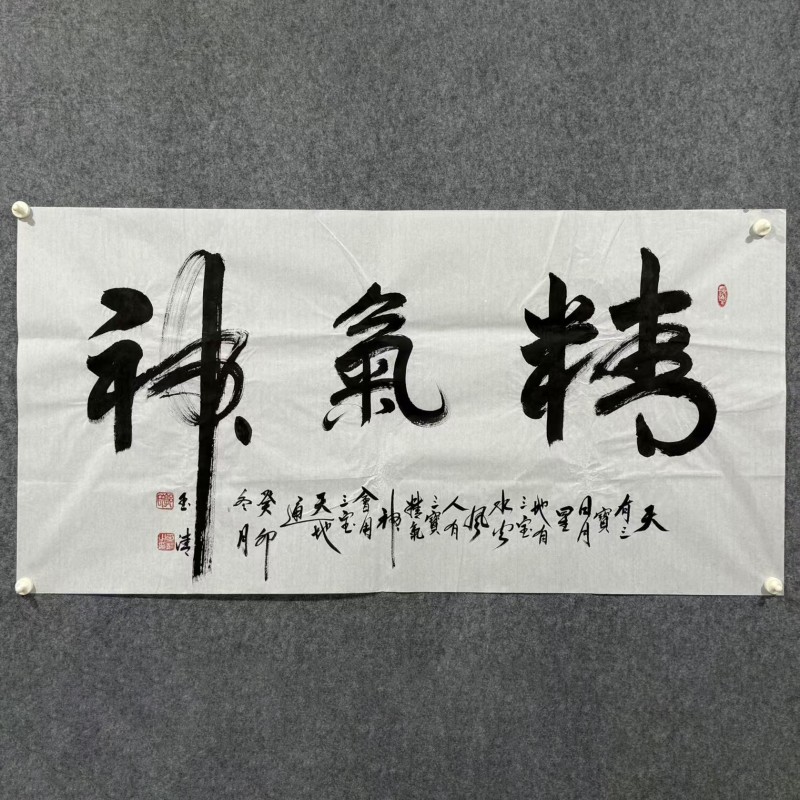 精氣神
天
有三
寶
日月
星
地有
三宝
水火
風
人有
三寶
精氣
神
會用
三宝
天地
通
癸卯
冬月
玉清